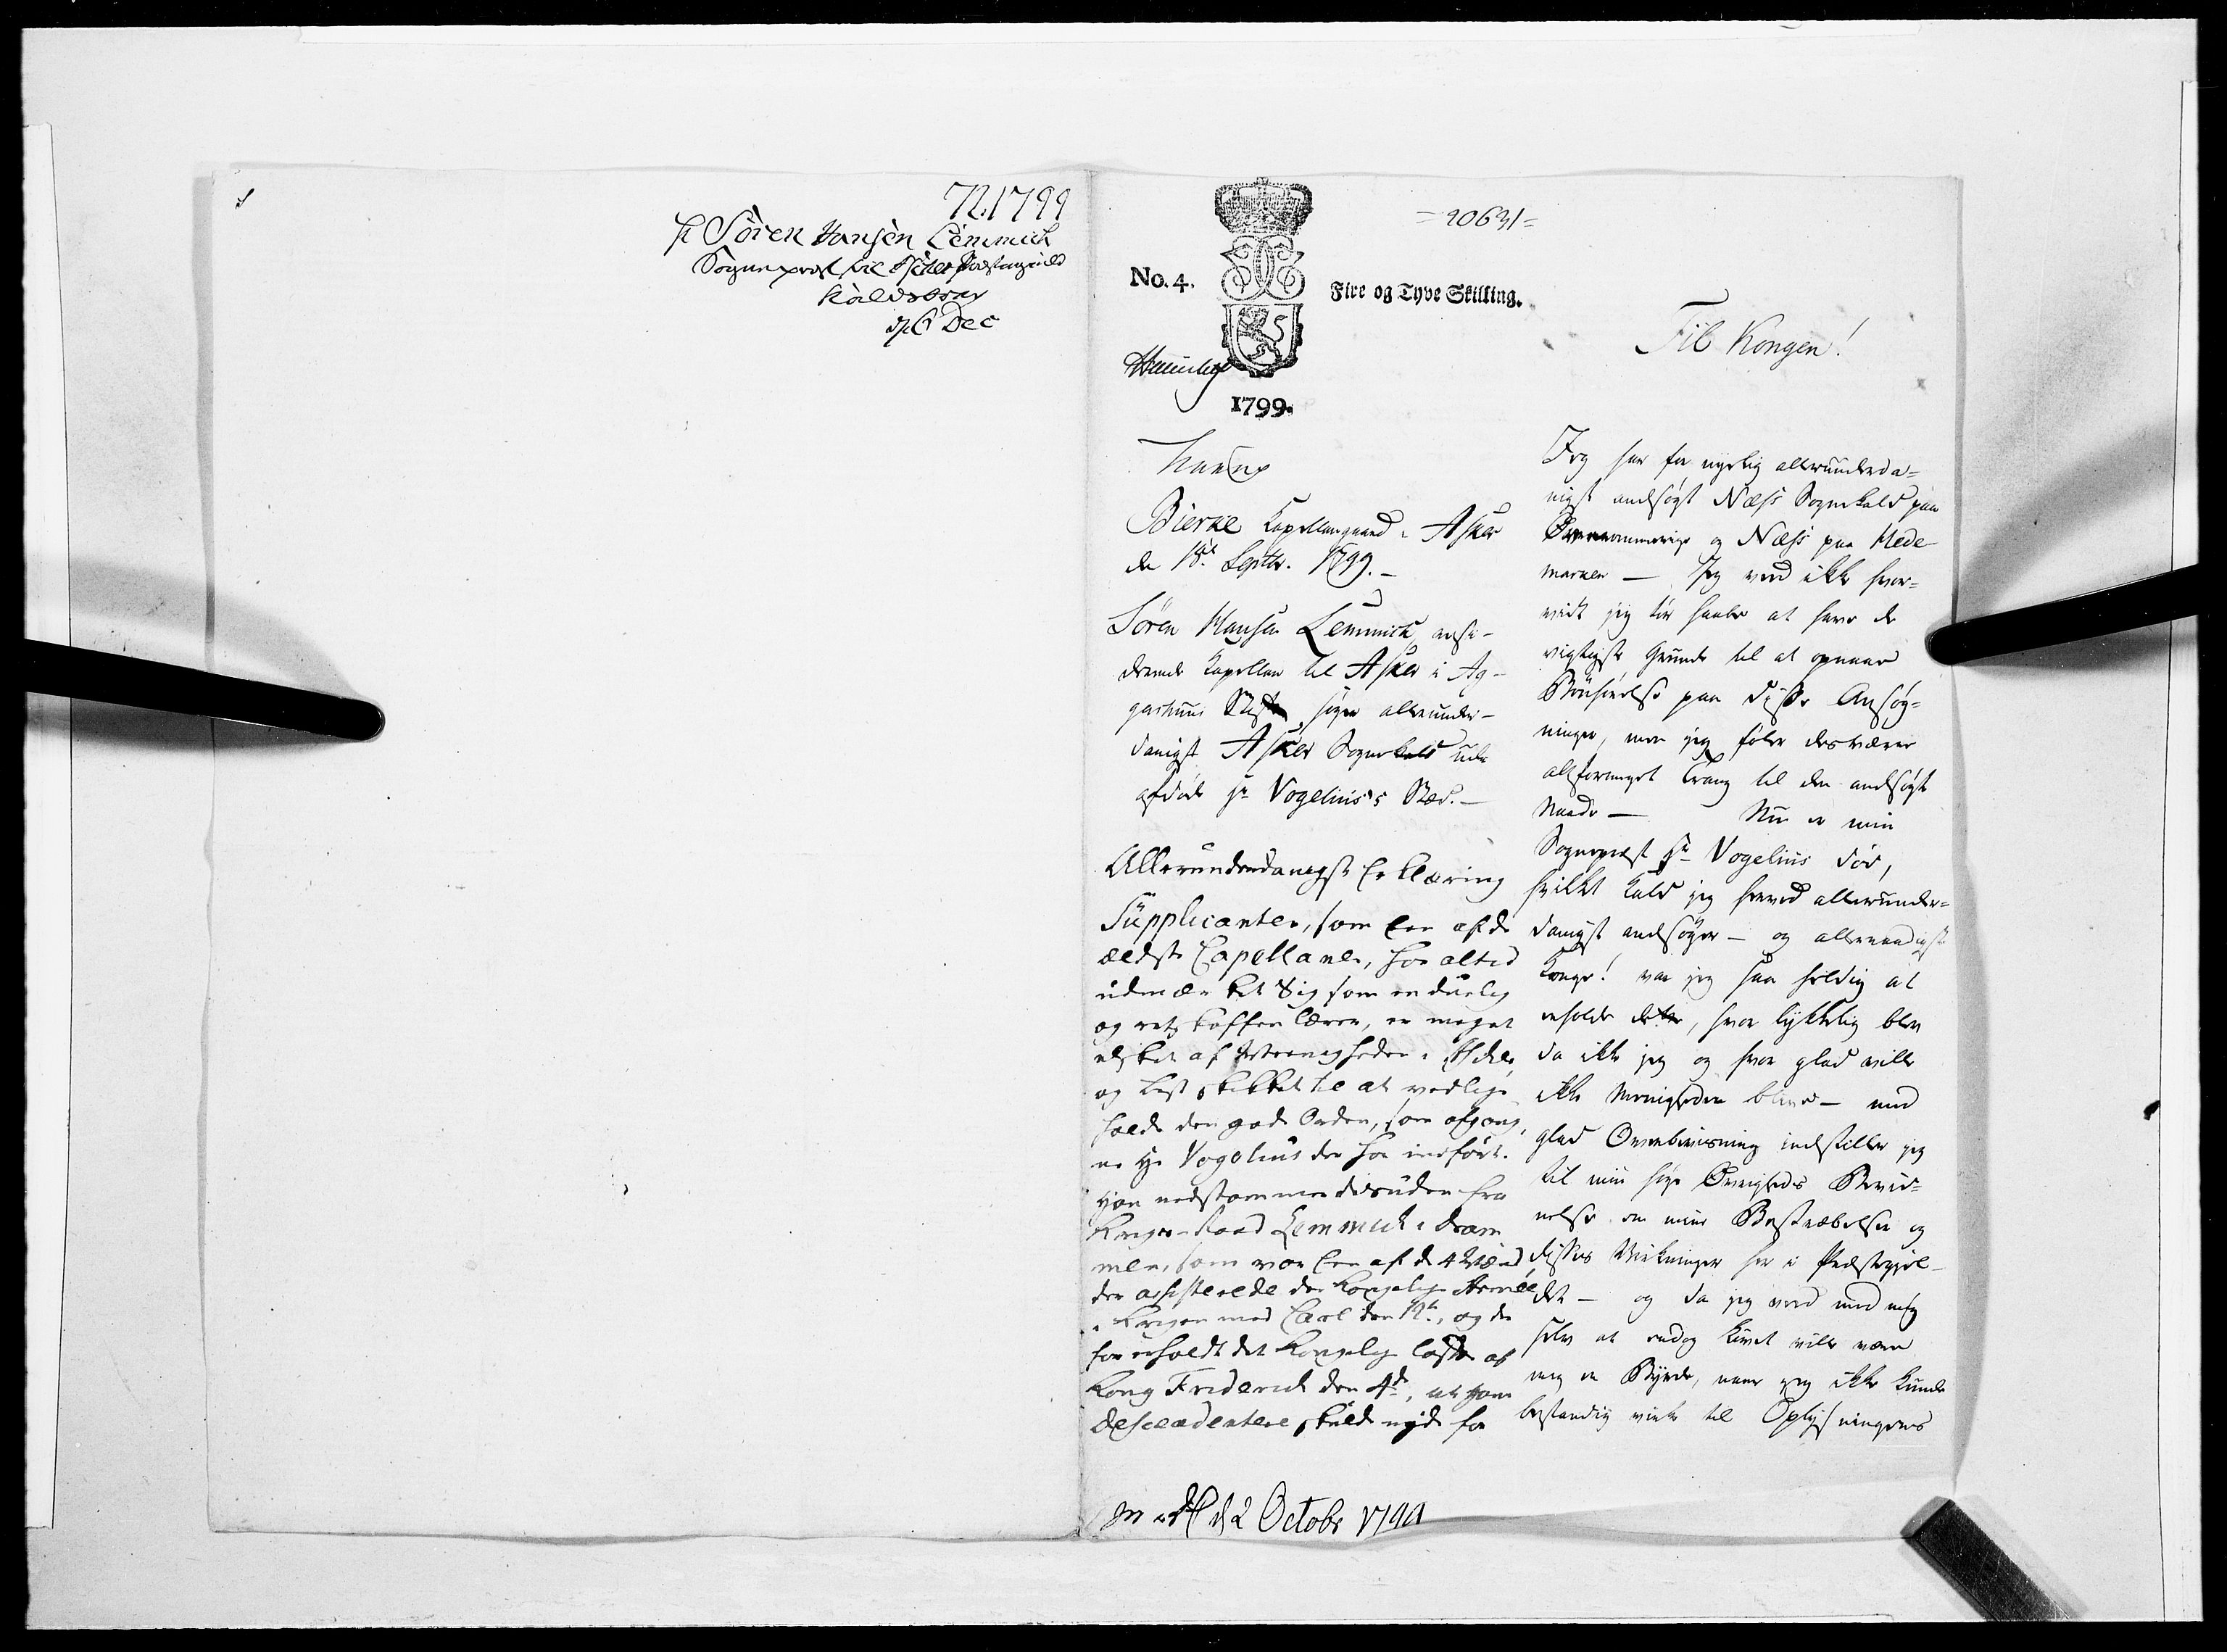 72.1799
Hr Sören Hansen Lemmich
Sognepræst til Asker Præstegield
Kaldsbrev
d 6 Dec
No. 4.
Fire og Tyve Skilling.
=20631=
1799.
Til Kongen!
Bierke Capellangaard i Asker
den 18de Septbr. 1799.-
Sören Hansen Lemmich, resi-
derende Kapellan til Asker i Ag-
gershuus Stift, søger allerunder-
danigst Asker Sognekald udi
afdøde Hr Vogelius's Sted.-
Allerunderdanigst Erklæring
Supplicanten, som Een af de
ældste Capellaner, har altid
udmærket Sig som en duelig
og retskaffen Lærer, er meget
elsket af Menigheden i Asker
og best skikket til at vedlige
holde den gode Orden, som afgang,
ne Hr Vogelius der har indført.
Han nedstammer desuden fra
Krigs-Raad Lemmich i Dram
men, som var Een af de 4 Mænd,
der assisterede den Kongelige Armée
i Krigen med Carl den 12te, og der
for erholdt det Kongelige Løfte af
Kong Friderich den 4de, at Hans
Descendentere skulde nyde for
Jeg har for nyelig allerunderda-
nigst ansøgt Næss Sognekald paa
Øvreromerige og Næss paa Hede-
marken - Jeg veed ikke hvor-
vidt jeg tør haabe at have de
vigtigste Grunde til at opnaae
Bønhørelse paa disse Ansøg-
ninger, men jeg føler desværre
altformeget Trang til den ansøgte
Naade - Nu er min
Sognepræst Hr Vogelius død,
hvilket Kald jeg herved allerunder-
danigst ansøger - og allernaadigste
Konge! var jeg saa heldig at
erholde dette, hvor lykkelig blev
da ikke jeg og hvor glad ville
ikke Menigheden blive - med
glad Overbeviisning indstiller jeg
til min høye Øvrigheds Bevid-
nelse om mine Bestræbelser og
disses Virkninger her i Præstegiel-
det - og da jeg veed med mig
selv at endog Livet ville være
mig en Byrde, naar jeg ikke kunde
bestandig virke til Oplysningens
d 2 Octobr 1799